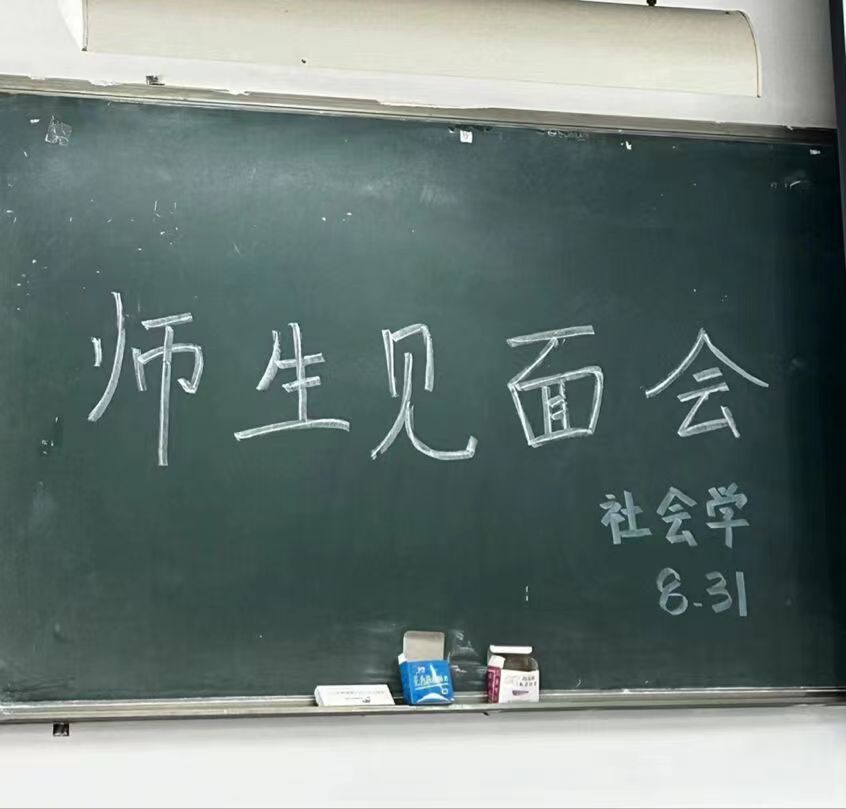 师生见面会
社会学
8.31